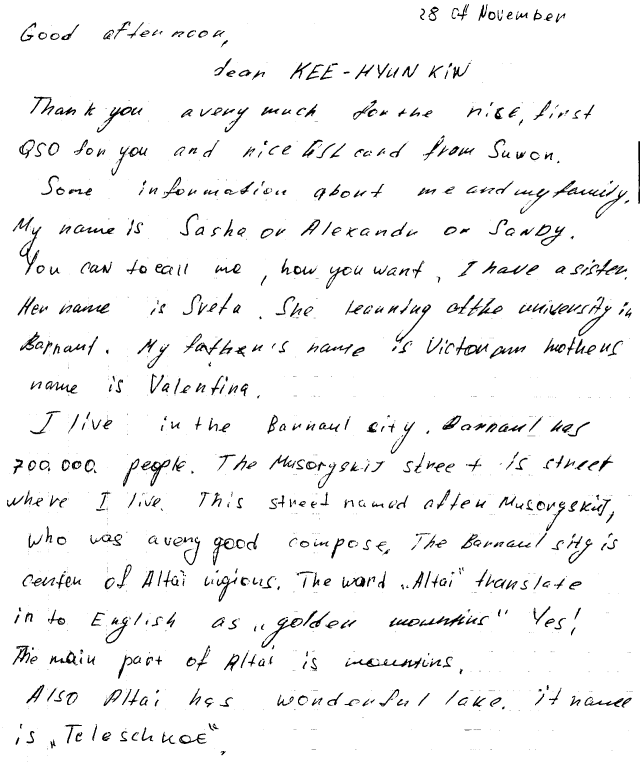 28 of November
Good afternoon,
dear KEE-HYUN KIM
Thank you a very much for the nice, first
QSO for you and nice QSL card from Suwon.
Some information about me and my family.
My name is Sasha or Alexandr or Sandy.
You can to call me, how you want. I have a sister.
Her name is Sveta. She learning at the university in
Barnaul. My father's name is Victor mothers
name is Valentina.
I live in the Barnaul city. Barnaul has
700.000. people. The Musorgskij street is street
where I live. This street named after Musorgskij,
who was a very good compose. The Barnaul sity is
center of Altai rigious. The word „Altai" translate
in to English as „golden mountins" Yes!
The main part of Altai is mountins.
Also Altai has wonderful lake. it name
is „Teleschkoe".